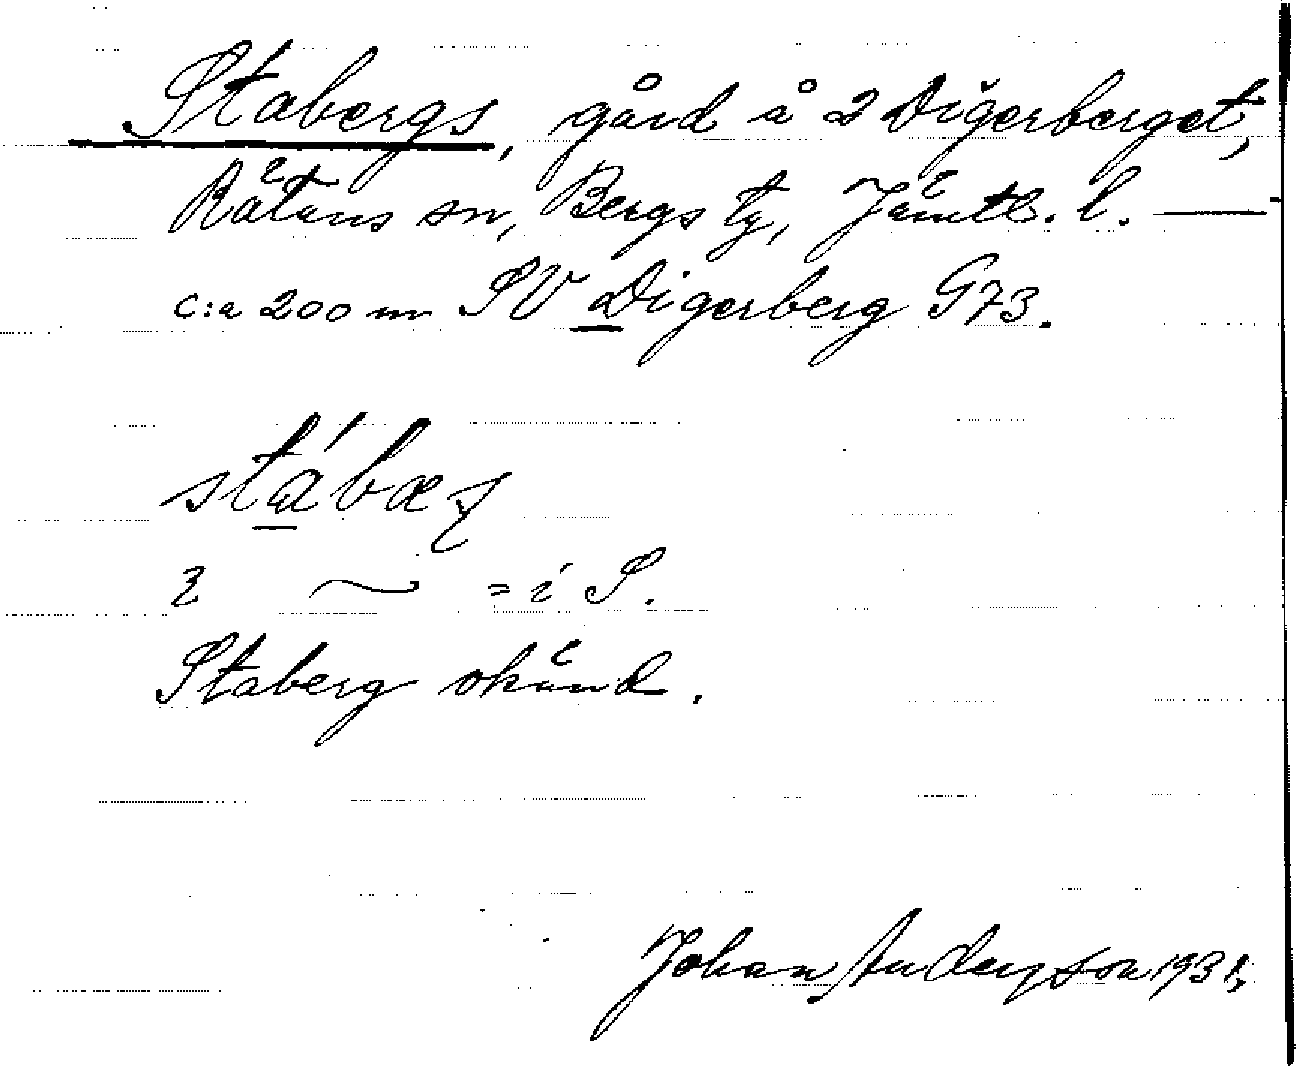 Stabergs, gård å 2 Digerberget,
Rätans sn, Bergs tg, Jämtl. l. —
c:a 200 m SV Digerberg G73.
stábæʂ
2 ~ = i S.
Staberg okänd.
Johan Anderson 1931,